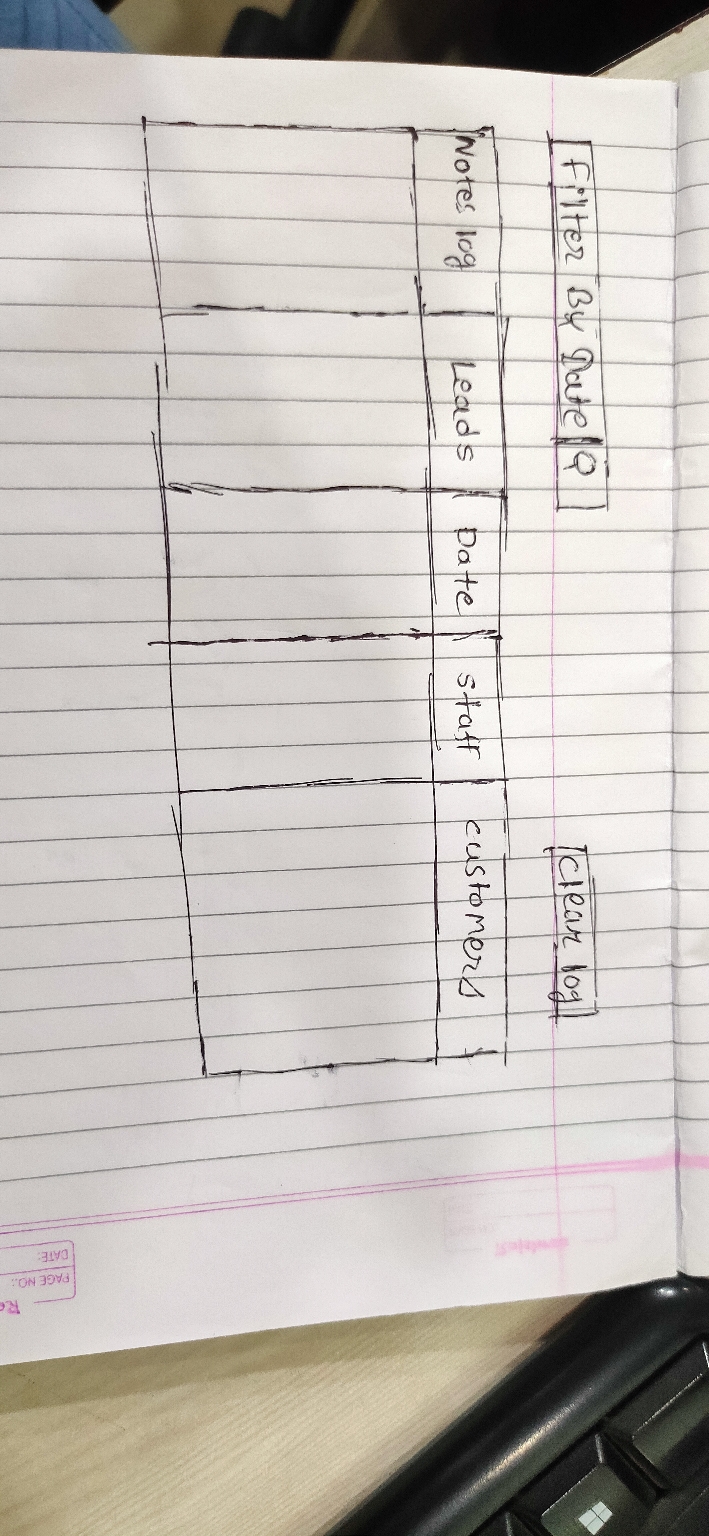 Filter By Date
Clear log
Notes log Leads Date Staff customers
DATE:
PAGE NO.: